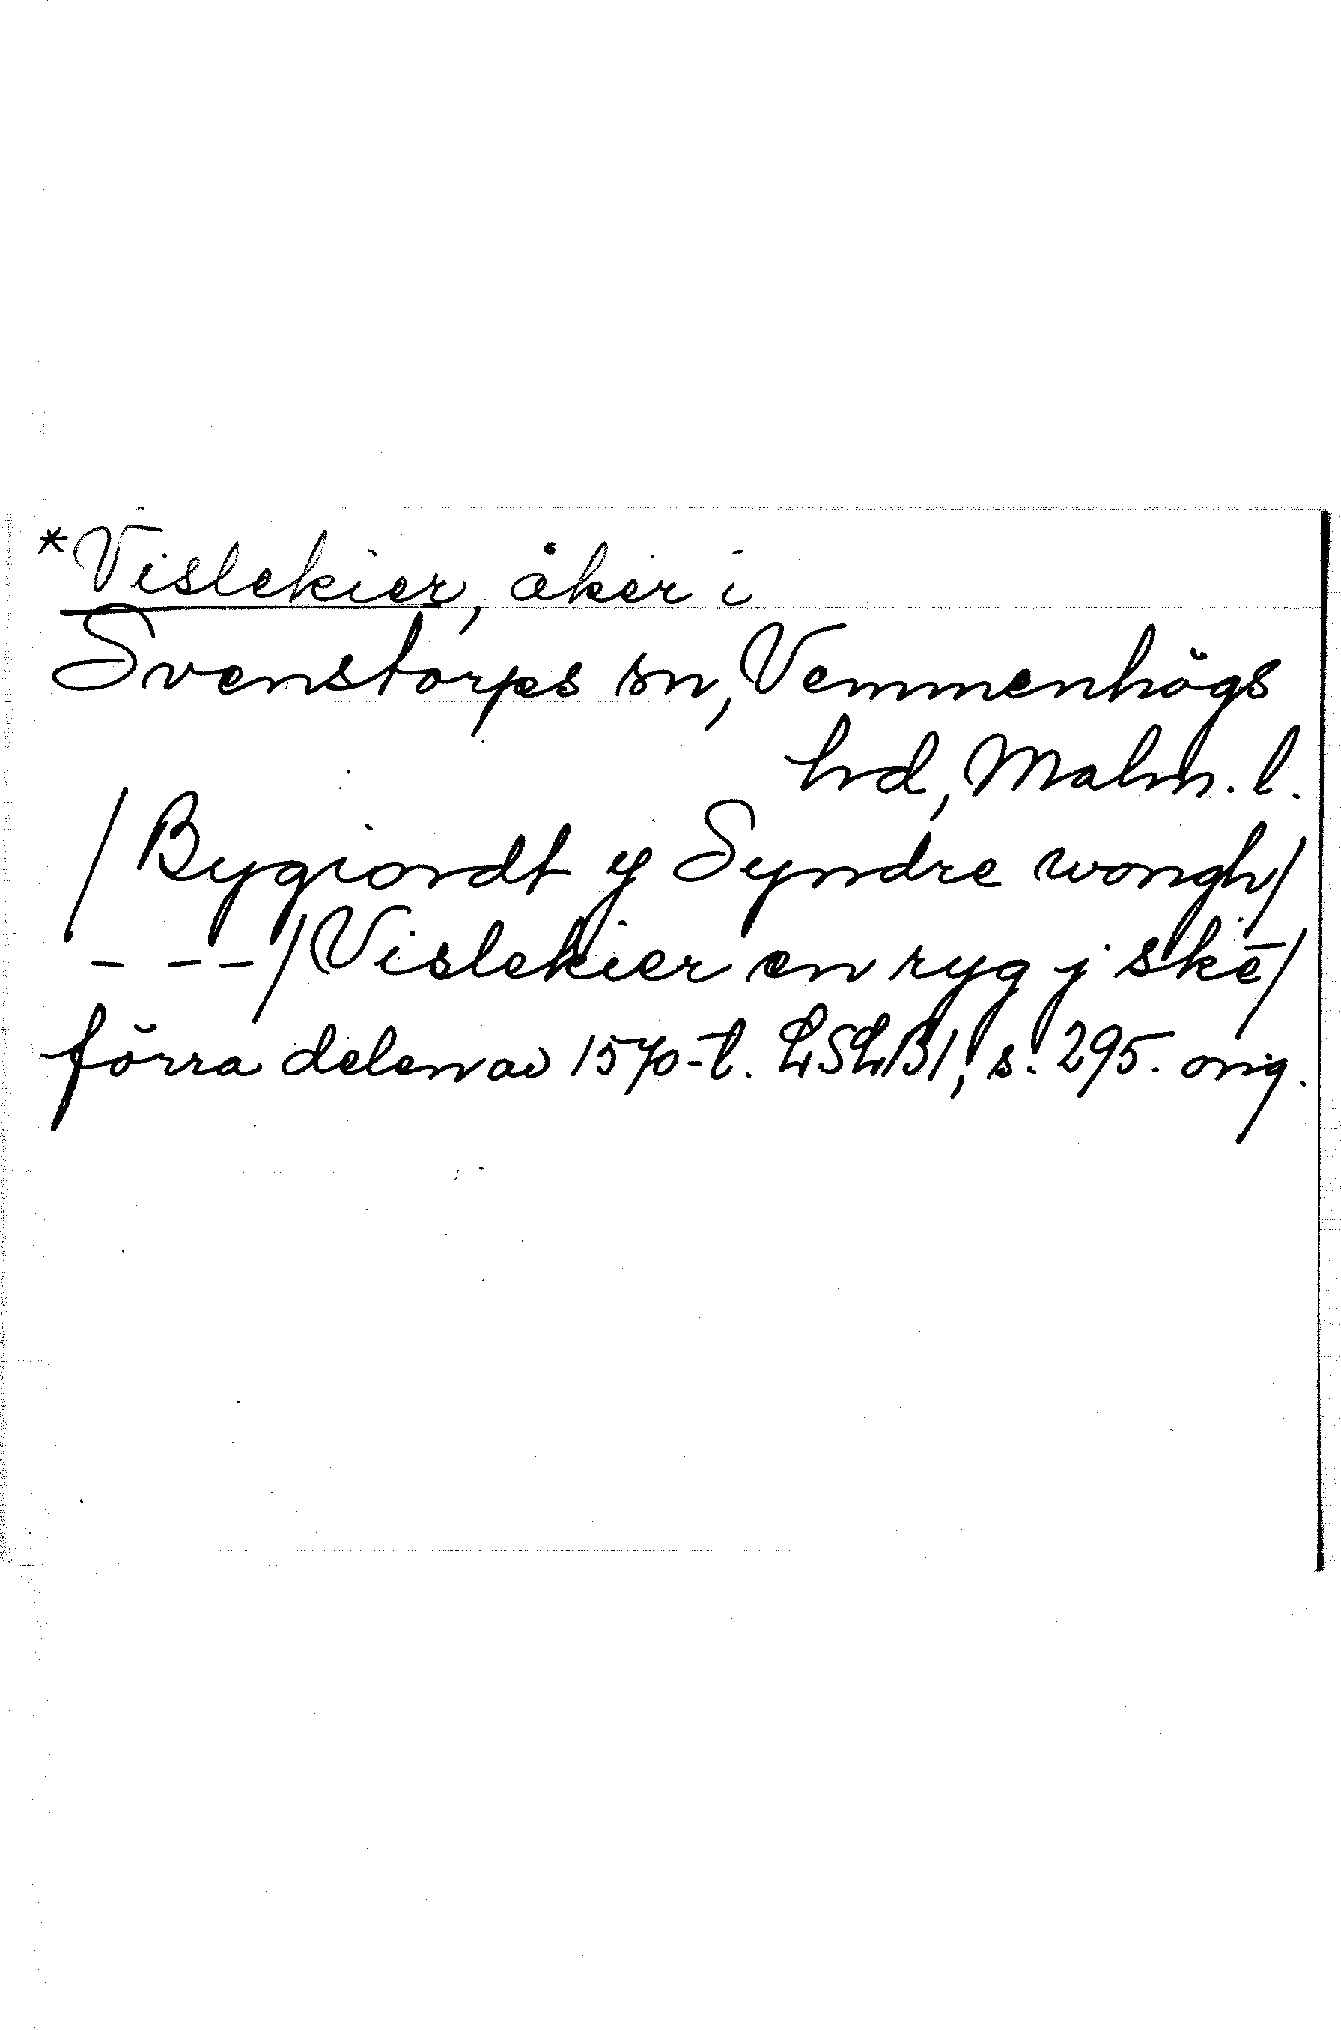 *Vislekier, åker i
Svenstorps sn, Vemmenhögs
hd, Malm. l.
/ Bygiordt y Syndre wongh /
- - - / Vislekier en ryg j skē /
förra delen av 1570-t. LSLB1, s. 295. orig.